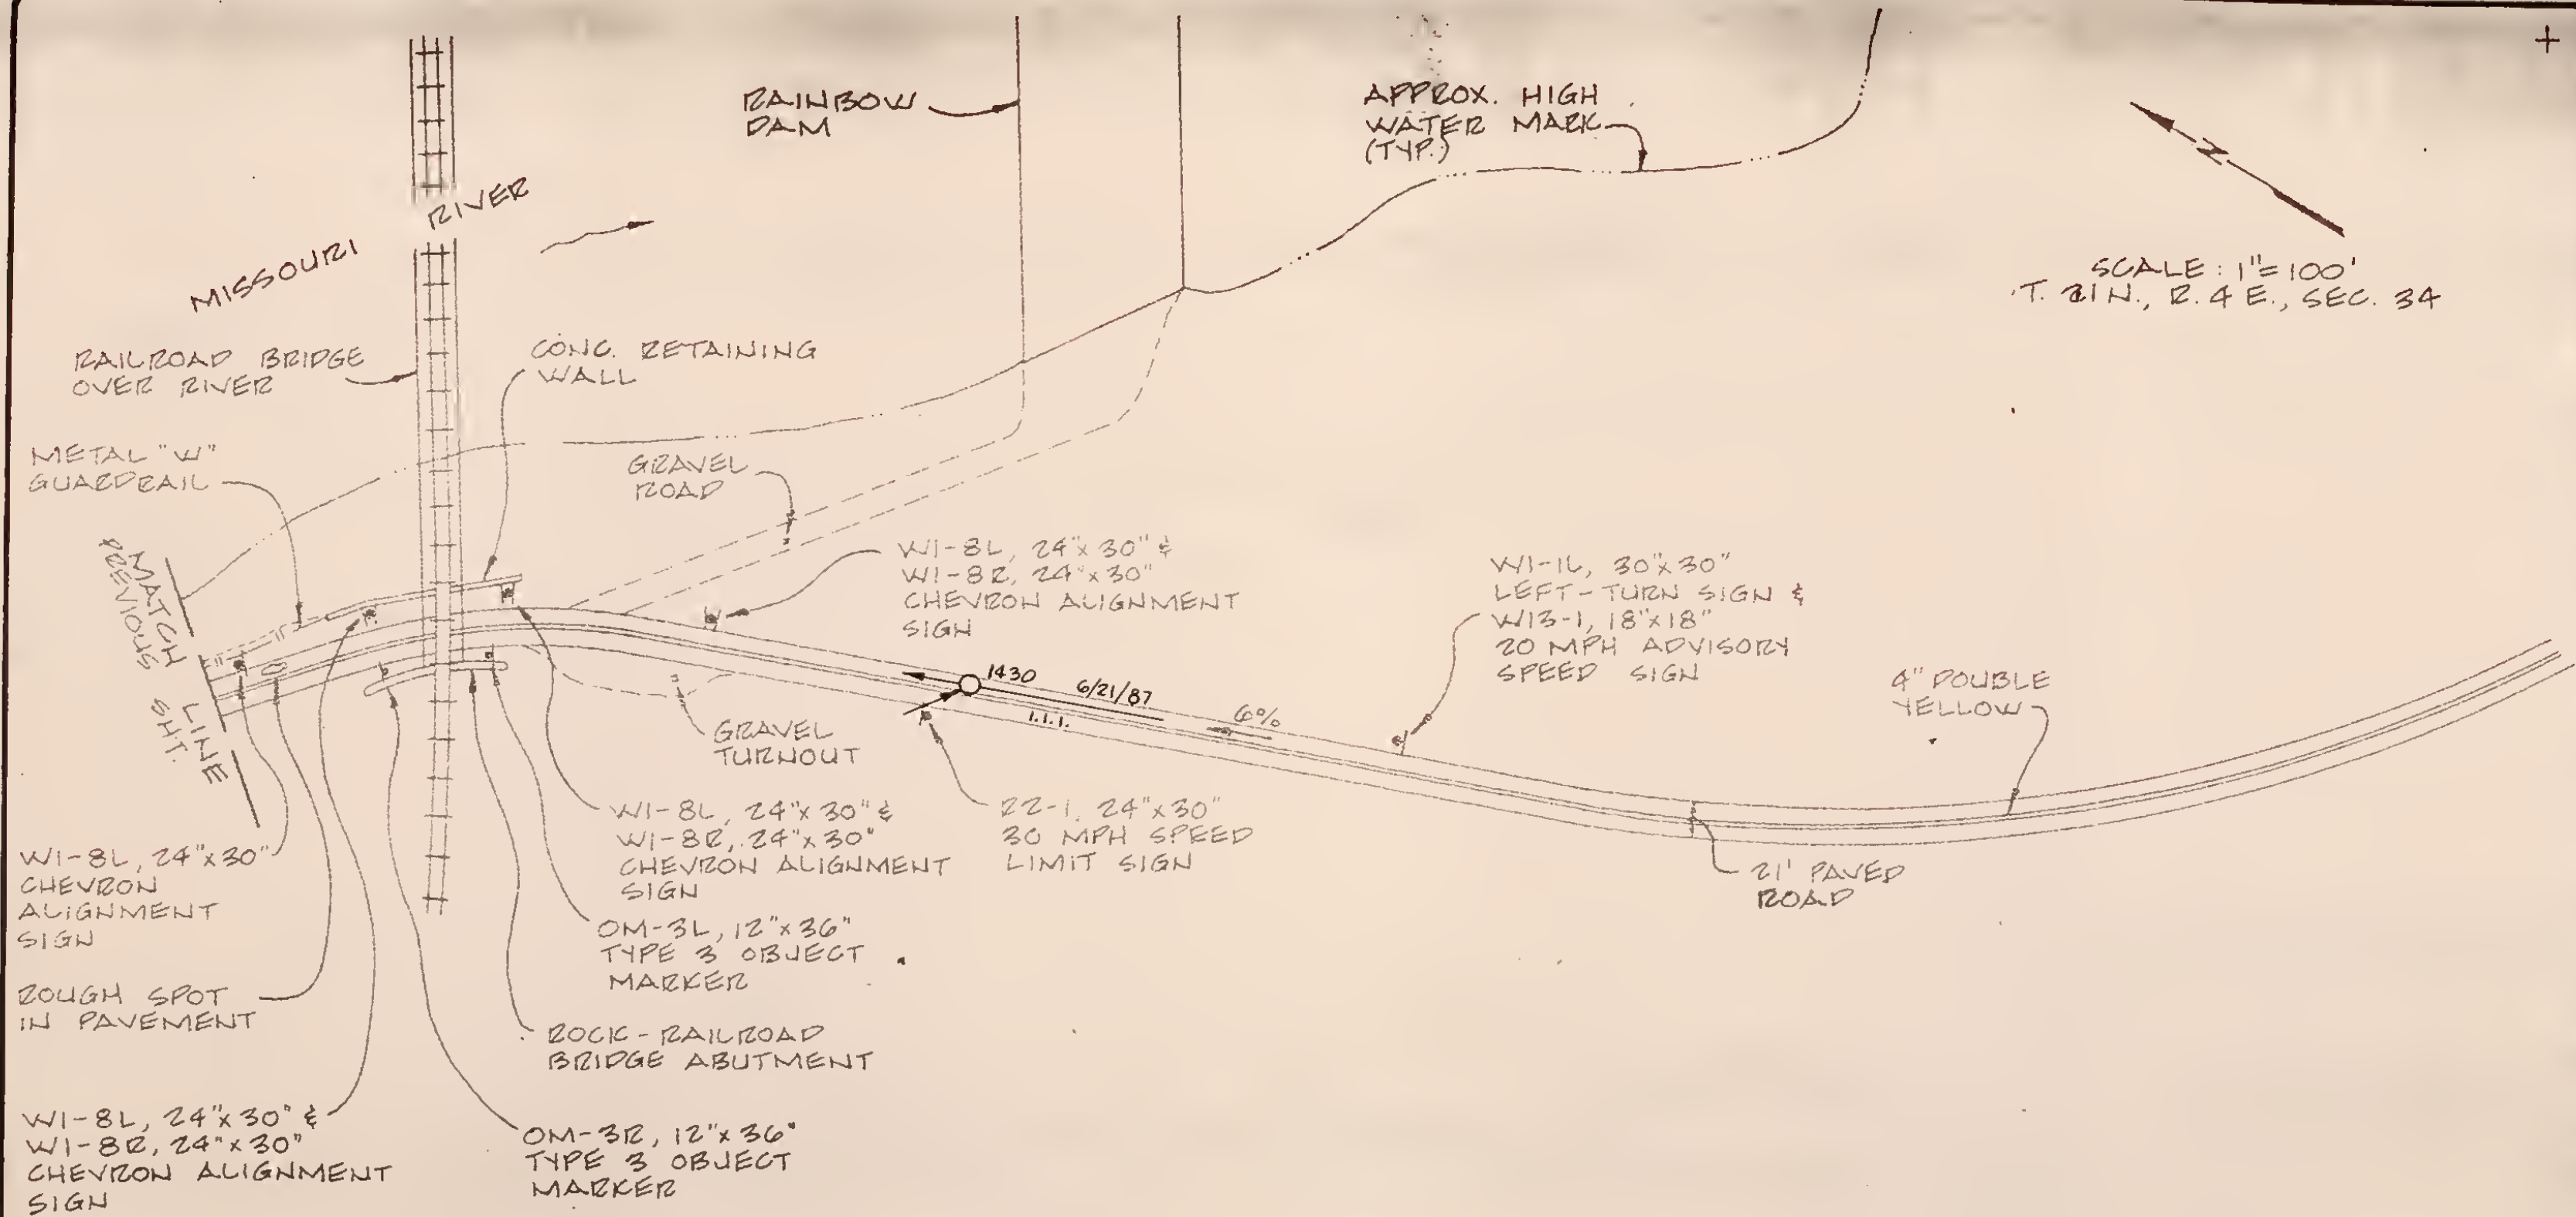 RAINBOW
DAM
APPROX. HIGH
WATER MARK
(TYP.)
N
SCALE: 1"=100'
T. 21N., R. 4 E., SEC. 34
MISSOURI RIVER
RAILROAD BRIDGE
OVER RIVER
CONC. RETAINING
WALL
METAL "W"
GUARDRAIL
GRAVEL
ROAD
MATCH LINE
PREVIOUS SHT.
W1-8L, 24"x30" &
W1-8R, 24"x30"
CHEVRON ALIGNMENT
SIGN
W1-1L, 30"x30"
LEFT-TURN SIGN &
W13-1, 18"x18"
20 MPH ADVISORY
SPEED SIGN
1430
6/21/87
1.1.1.
6%
4" DOUBLE
YELLOW
GRAVEL
TURNOUT
W1-8L, 24"x30" &
W1-8R, 24"x30"
CHEVRON ALIGNMENT
SIGN
R2-1, 24"x30"
30 MPH SPEED
LIMIT SIGN
21' PAVED
ROAD
W1-8L, 24"x30"
CHEVRON
ALIGNMENT
SIGN
OM-3L, 12"x36"
TYPE 3 OBJECT
MARKER
ROUGH SPOT
IN PAVEMENT
ROCK-RAILROAD
BRIDGE ABUTMENT
W1-8L, 24"x30" &
W1-8R, 24"x30"
CHEVRON ALIGNMENT
SIGN
OM-3R, 12"x36"
TYPE 3 OBJECT
MARKER